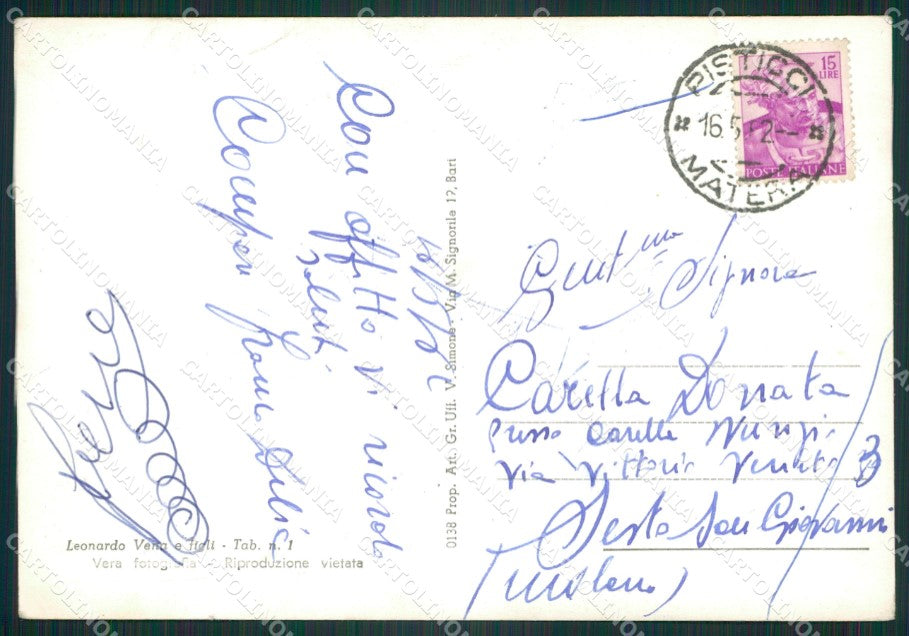 16/5/62
Con affetto vi ricorda
Saluti
Compar
Leonardo Vena e figli - Tab. n. 1
Vera fotografia - Riproduzione vietata
0138 Prop. Art. Gr. Uff. V. Simone - Via M. Signorile 17, Bari
PISTICCI
16.5.62
MATERA
15
LIRE
POSTE ITALIANE
Gent.ma Signora
Carella Donata
presso Carella Nunzio
Via Vittorio Veneto 3
Sesto San Giovanni
(Milano)
CARTOLINOMANIA